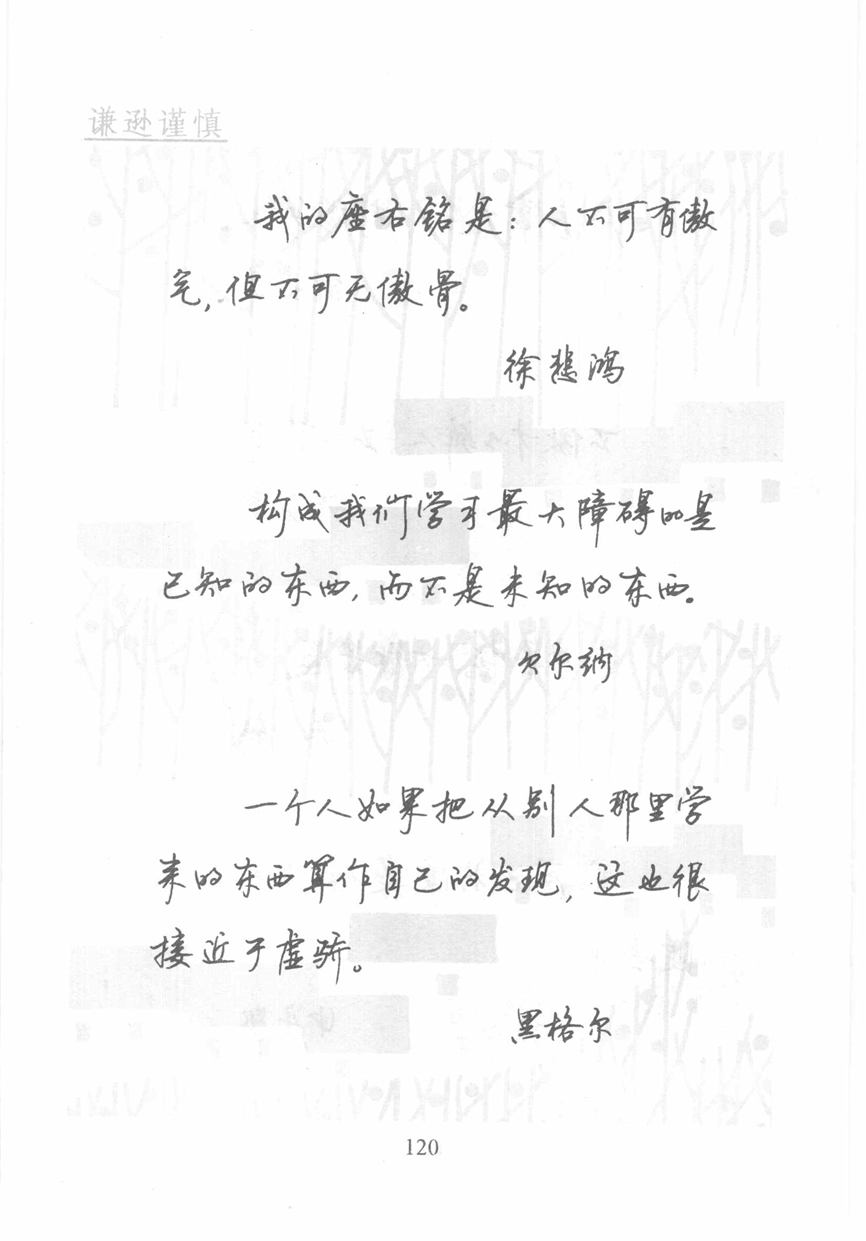 谦逊谨慎
我的座右铭是：人不可有傲
气，但不可无傲骨。
徐悲鸿
构成我们学习最大障碍的是
已知的东西，而不是未知的东西。
贝尔纳
一个人如果把从别人那里学
来的东西算作自己的发现，这也很
接近于虚骄。
黑格尔
120